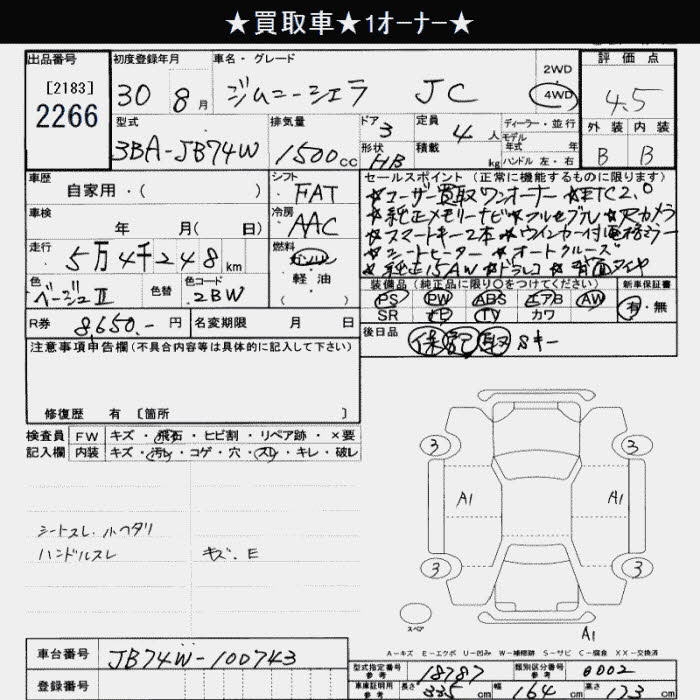 ★買取車★1オーナー★
出品番号 初度登録年月 車名・グレード 2WD 評価点
[2183]
2266 30 8月 ジムニーシエラ JC 4WD 4.5
型式 排気量 ドア 3 定員 4人 ディーラー・並行 外装 内装
モデル年式 年
3BA-JB74W 1500cc 形状 HB 積載 kg ハンドル 左・右 B B
車歴 シフト セールスポイント(正常に機能するものに限ります)
自家用・( ) FAT ★ユーザー買取ワンオーナー ★ETC2.0
車検 冷房 ★純正メモリーナビ★フルセグブル★Rカメラ
年 月( 日) AAC ★スマートキー2本★ウインカー付電格ミラー
走行 燃料 ★シートヒーター ★オートクルーズ
5万4千248km ガソリン 軽油( ) ★純正15AW ★ドラレコ ★背面タイヤ
色 色替 色コード 装備品(純正品に限り○をつけてください) 新車保証書
ベージュII 2BW PS PW ABS エアB AW 有・無
SR ナビ TV カワ
R券 8,650.-円 名変期限 月 日 後日品 保 記 取 Sキー
注意事項申告欄(不具合内容等は具体的に記入して下さい)
修復歴 有 [箇所 ]
検査員 FW キズ・飛石・ヒビ割・リペア跡・×要
記入欄 内装 キズ・汚れ・コゲ・穴・スレ・キレ・破レ
3 3
A1 A1
シートスレ.小ヘタリ
ハンドルスレ キズ.E
3 3
スペア
A1
A-キズ E-エクボ U-凹み W-補修跡 S-サビ C-腐食 XX-交換済
車台番号 JB74W-100743
型式指定番号 参考 18787 類別区分番号 参考 0002
登録番号
車庫証明用 参考 長さ 335cm 幅 164cm 高さ 173cm